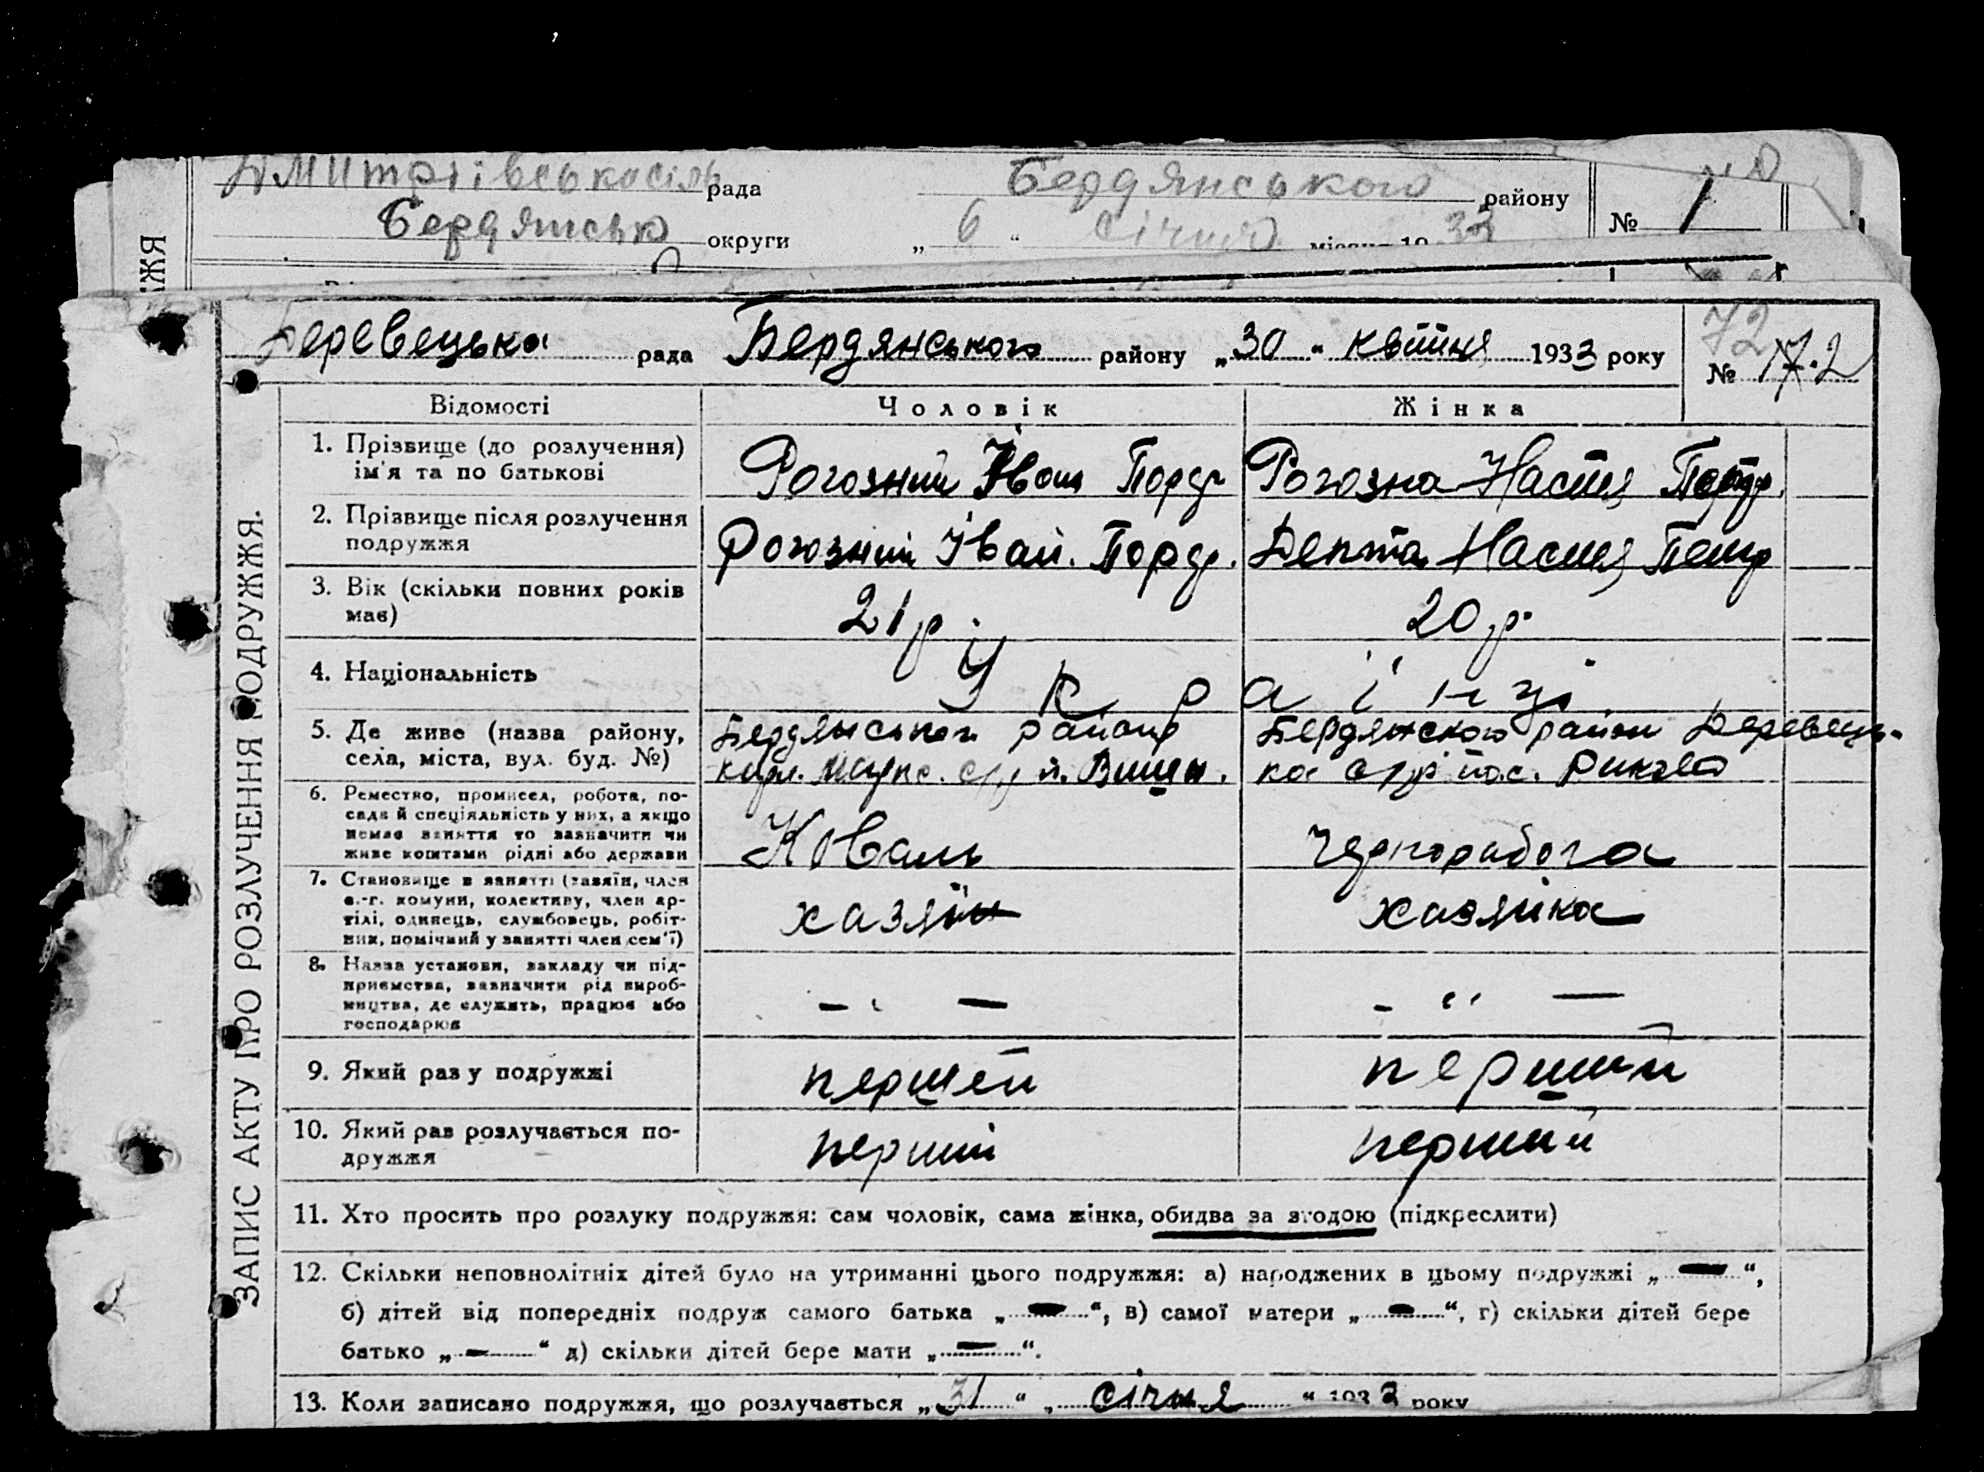 рада Бердянського району
Бердянська округи „ 6 “ січня 1933 № 1
ЗАПИС АКТУ ПРО РОЗЛУЧЕННЯ ПОДРУЖЖЯ.
рада Бердянського району „ 30 “ квітня 1933 року № 172
72
Відомості Чоловік Жінка
1. Прізвище (до розлучення)
ім'я та по батькові
Рогозний Іван Рогозна Настя
2. Прізвище після розлучення
подружжя
Рогозний Іван. Депта Настя Петр
3. Вік (скільки повних років
має)
21 р. 20 р.
4. Національність
Українці
5. Де живе (назва району,
села, міста, вул. буд. №)
Бердянського району Бердянского район
6. Ремество, промисел, робота, по-
сада й спеціяльність у них, а якщо
немає заняття то зазначити чи
живе коштами рідні або держави
Коваль Чернорабоча
7. Становище в занятті (хазяїн, член
с.-г. комуни, колективу, член ар-
тілі, одинець, службовець, робіт-
ник, помічний у занятті член сем'ї)
хазяїн хазяйка
8. Назва установи, закладу чи під-
приємства, зазначити рід вироб-
ництва, де служить, працює або
господарює
— „ — — „ —
9. Який раз у подружжі
першей перший
10. Який раз розлучається по-
дружжя
перший перший
11. Хто просить про розлуку подружжя: сам чоловік, сама жінка, обидва за згодою (підкреслити)
12. Скільки неповнолітніх дітей було на утриманні цього подружжя: а) народжених в цьому подружжі „ — “,
б) дітей від попередніх подруж самого батька „ — “, в) самої матери „ — “, г) скільки дітей бере
батько „ — “ д) скільки дітей бере мати „ — “.
13. Коли записано подружжя, що розлучається „ 31 “ „ січня “ 1933 року